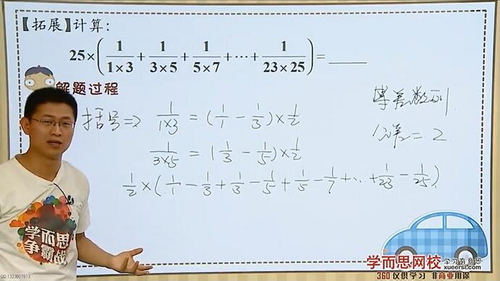 【拓展】计算:
25×(1/1×3+1/3×5+1/5×7+…+1/23×25)=____
解题过程
括号=> 1/1×3 = (1/1 - 1/3)×1/2
等差数列
1/3×5 = (1/3 - 1/5)×1/2
公差=2
1/2×(1/1 - 1/3 + 1/3 - 1/5 + 1/5 - 1/7 + … + 1/23 - 1/25)
学而思
争霸战
学而思网校
xueersi.com
360 仅供学习 非商业用途